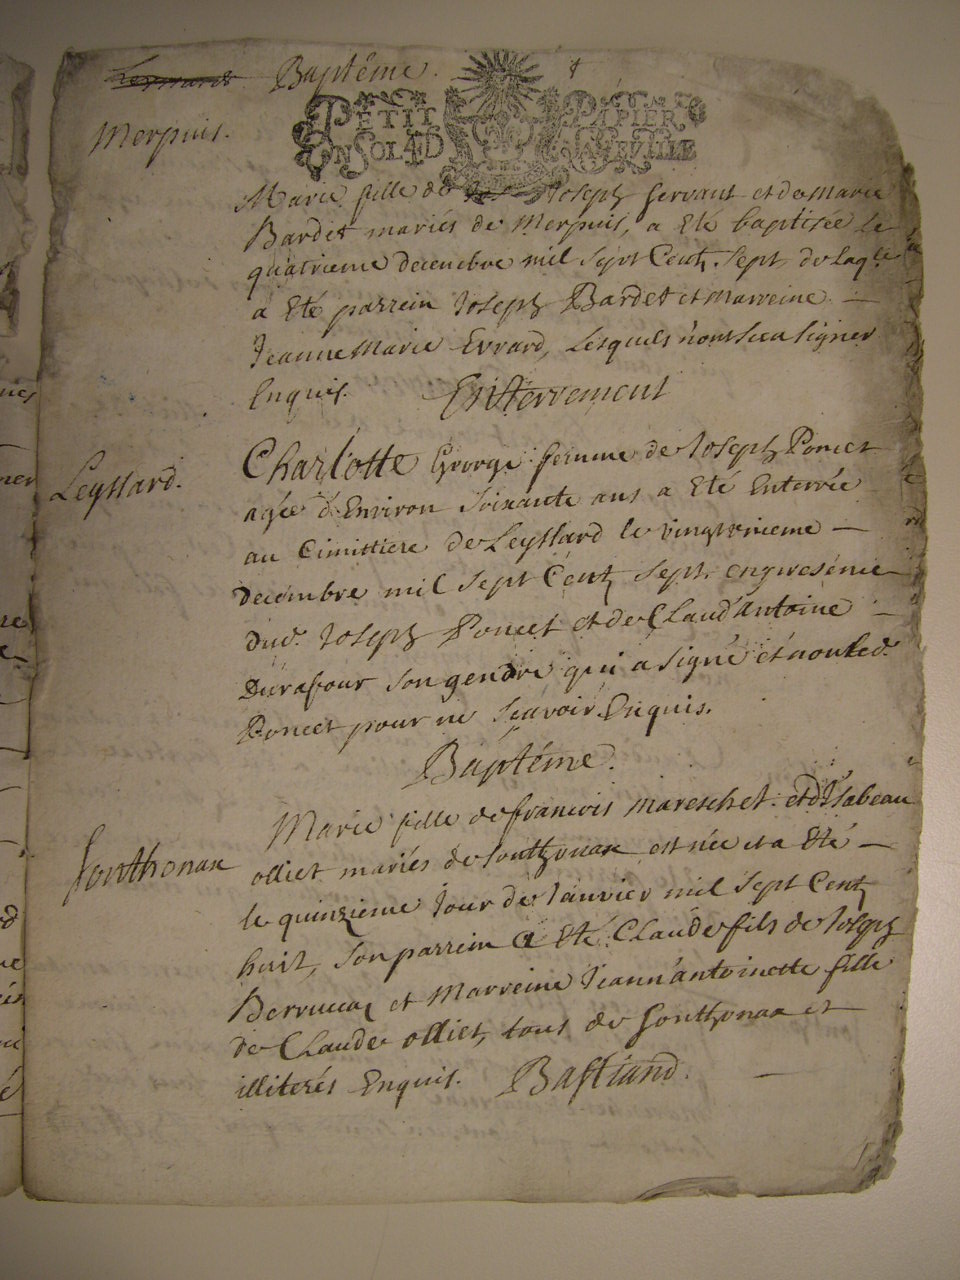 Baptéme.
PETIT PAPIER
UN SOL 4 D LA FEVILLE
Merpuis.
Marie fille de Joseph Servant et de Marie
Bardet mariés de Merpuis, a eté baptisée le
quatrieme decembre mil sept Cent Sept, de laqle
a Eté parrein Joseph Bardet et Marreine —
Jeanne Marie Evrard, Lesquels n'ont sceu signer
Enquis.
Enterrement
Leyssard.
Charlotte George femme de Joseph Poncet
agée d'Environ Soixante ans a Eté Enterrée
au Cimittiere de Leyssard le vingt —
decembre mil sept Cent Sept. en presénce
dud. Joseph Poncet et de Claud'Antoine —
Durafour son gendre qui a signé et non led.
Poncet pour ne Sçavoir Enquis.
Baptéme.
Sonthonax
Marie fille de francois Mareschet et d'Isabeau
olliet mariés de Sonthonax est née et a Eté —
le quinzieme Jour de Janvier mil Sept Cent
huit, Son parrein a Eté Claude fils de Joseph
et Marreine Jeann'antoinette fille
de Claude olliet, tous de Sonthonax et
illiterés Enquis. Bastiand. —